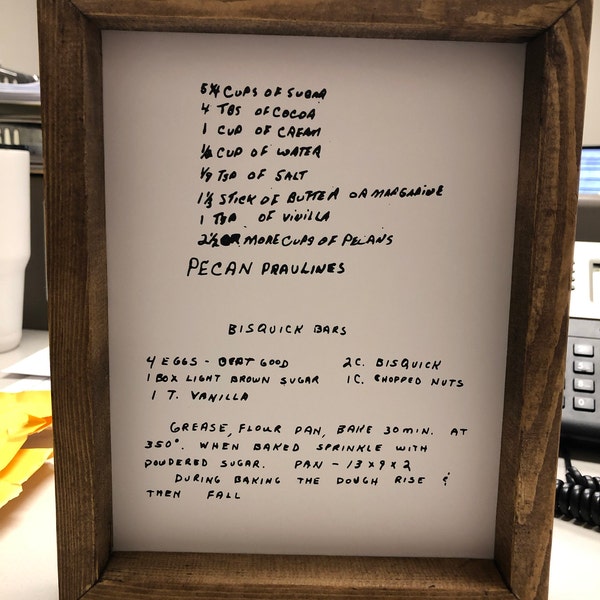 CUPS OF SUGAR
4 TBS OF COCOA
1 CUP OF CREAM
CUP OF WATER
TSP OF SALT
STICK OF BUTTER OR MARGARINE
1 TSP OF VINILLA
2½ OR MORE CUPS OF PECANS
PECAN PRAULINES
BISQUICK BARS
4 EGGS - BEAT GOOD 2 C. BISQUICK
1 BOX LIGHT BROWN SUGAR 1 C. CHOPPED NUTS
1 T. VANILLA
GREASE, FLOUR PAN, BAKE 30 MIN. AT
350°. WHEN BAKED SPRINKLE WITH
POWDERED SUGAR. PAN - 13 X 9 X 2
DURING BAKING THE DOUGH RISE &
THEN FALL